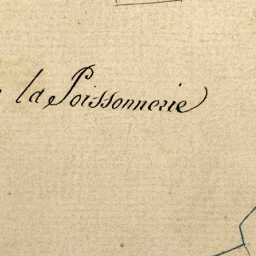 la Poissonnerie